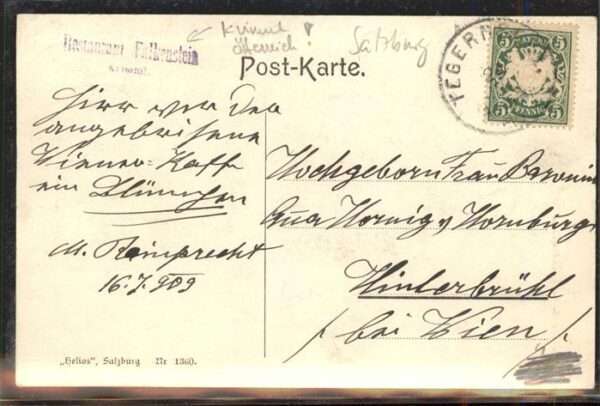 Restaurant Falkenstein
Krimml.
← Krimml !
Österreich !
Salzburg
Post-Karte.
TEGERNS
5 5
Hier von der
angebrisene
Wiener-Kaffe
ein Blümchen
M. Ramprecht
16.7.909
Hochgeborn Frau Baronin
Hornig v Hornburg
Hinterbrühl
bei Wien
„Helios", Salzburg Nr 1360.